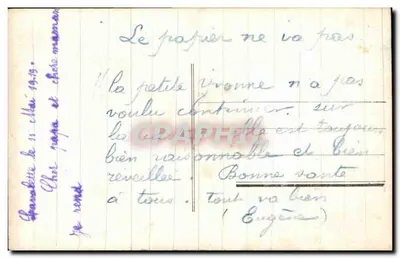 Le papier ne va pas
la petite Yvonne n a pas
voulu continuer. sur
la elle est toujours
bien raisonnable et bien
reveillée. Bonne santé
à tous. tout va bien
(Eugène)
le 11 Mai 1919.
Cher papa et chere maman
je rend